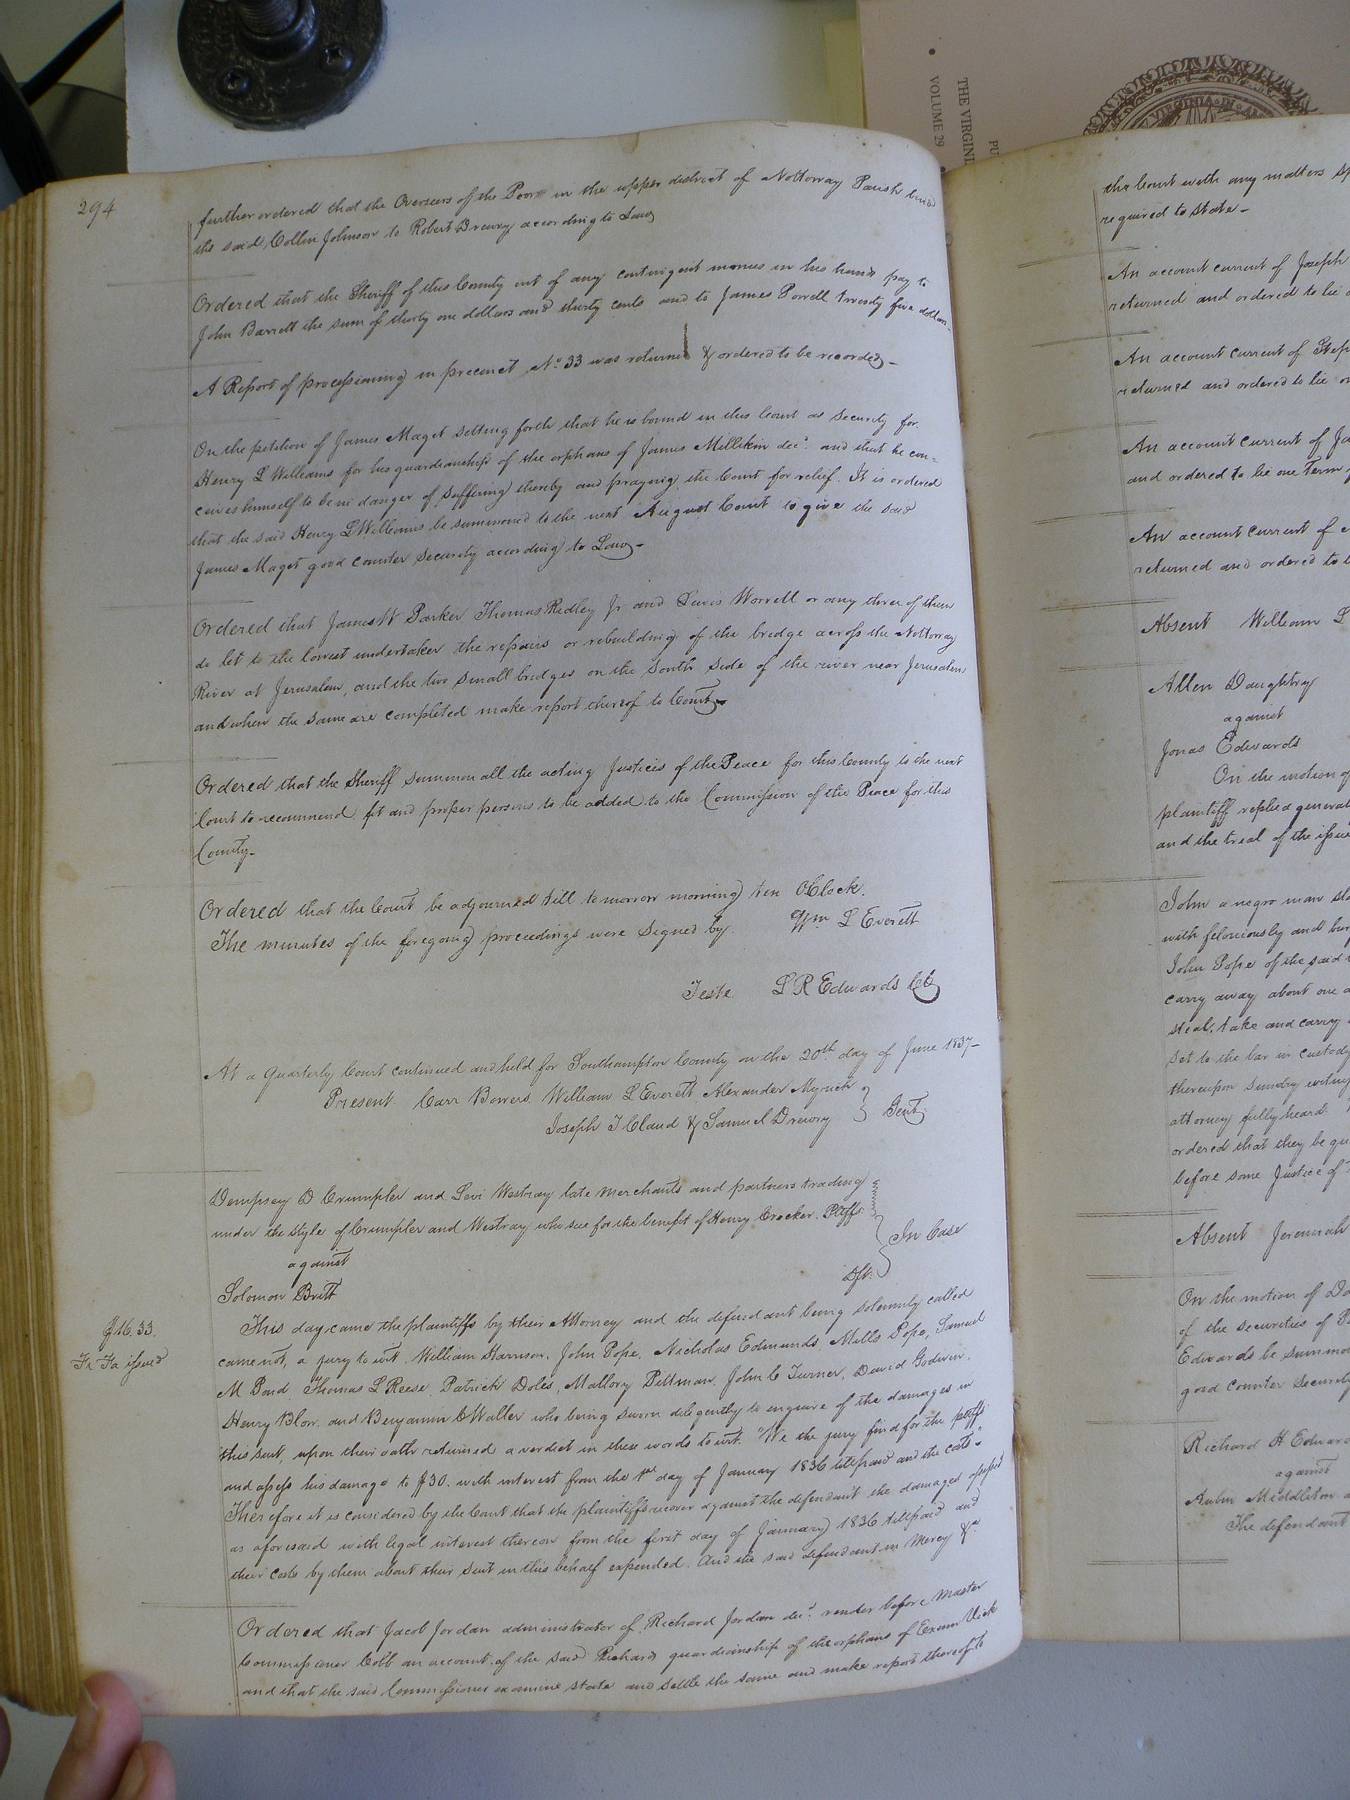 294
further ordered that the Overseers of the Poor in the upper district of Nottoway Parish bind
the said Collin Johnson to Robert Drewry according to Law
Ordered that the Sheriff of this County out of any contingent monies in his hands pay to
John Barrett the sum of thirty one dollars and thirty cents and to James Powell twenty five dollars
A Report of processioning in precinct No 33 was returned & ordered to be recorded -
On the petition of James Maget setting forth that he is bound in this Court as security for
Henry L Williams for his guardianship of the orphans of James Millikin decd. and that he con=
ceives himself to be in danger of suffering thereby and praying the Court for relief. It is ordered
that the said Henry L Williams be summoned to the next August Court to give the said
James Maget good counter security according to Law -
Ordered that James W Parker Thomas Ridley Jr and Lewis Worrell or any three of them
do let to the lowest undertaker the repairs or rebuilding of the bridge across the Nottoway
River at Jerusalem, and the two small bridges on the South side of the river near Jerusalem
and when the same are completed make report thereof to Court -
Ordered that the Sheriff summon all the acting Justices of the Peace for this County to the next
Court to recommend fit and proper persons to be added to the Commission of the Peace for this
County -
Ordered that the Court be adjourned till tomorrow morning ten OClock.
The minutes of the foregoing proceedings were signed by Wm L Everett
Teste L R Edwards
At a Quarterly Court continued and held for Southampton County on the 20th day of June 1837 -
Present Carr Bowers William L Everett Alexander Myrick
Joseph T Claud & Samuel Drewry } Gent.
Dempsey D Crumpler and Levi Westray late merchants and partners trading
under the style of Crumpler and Westray who sue for the benefit of Henry Crocker. Pltffs.
against } In Case
Solomon Britt Dft.
This day came the plaintiffs by their Attorney and the defendant being solemnly called
$16.33. came not, a jury to wit, William Harrison, John Pope, Nicholas Edmunds, Mills Pope, Samuel
Fi Fa issued M Pond Thomas L Reese, Patrick Doles, Mallory Pittman, John C Turner, David Godwin,
Henry Blow, and Benjamin C Waller who being sworn diligently to enquire of the damages in
this suit, upon their oath returned a verdict in these words to wit. "We the jury find for the pltffs
and assess his damage to $30. with interest from the 1st day of January 1836 till paid and the costs"
Therefore it is considered by the Court that the plaintiffs recover against the defendant the damages assessed
as aforesaid with legal interest thereon from the first day of January 1836 till paid and
their costs by them about their suit in this behalf expended. And the said defendant in Mercy &c
Ordered that Jacob Jordan administrator of Richard Jordan decd. render before Master
Commissioner Cobb an account of the said Richards guardianship of the orphans of Exum Vick
and that the said Commissioner examine state and settle the same and make report thereof to
the Court with any matters
required to state -
An account current of Joseph
returned and ordered to lie
An account current of
returned and ordered to lie
An account current of
and ordered to lie one Term
An account current of
returned and ordered to
Absent William L
Allen Daughtry
against
Jonas Edwards
On the motion of
plaintiff replied
and the trial of the issue
John a negro man
with feloniously and
John Pope of the said
carry away about one
steal, take and carry
set to the bar in custody
thereupon sundry
attorney fully heard.
ordered that they be
before some Justice of
Absent Jeremiah
On the motion of
of the securities of
Edwards be
good counter security
Richard H
against
Middleton
The defendant
THE
VOLUME 29